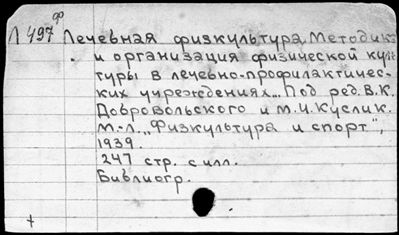 ф
Л 497 Лечебная физкультура. Методика
и организация физической куль
туры в лечебно-профилактичес-
ких учреждениях... Под ред. В.К.
Добровольского и М.И. Куслик.
М.-Л. „Физкультура и спорт",
1939.
247 стр. с илл.
Библиогр.
+